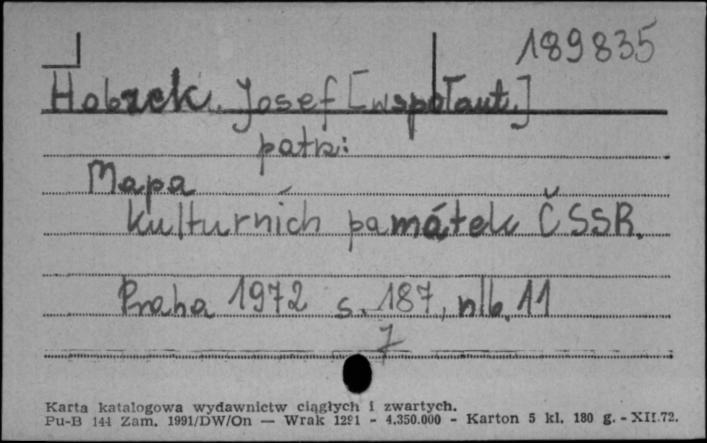 189835
Hobzek. Josef [współaut.]
patrz:
Mapa
kulturních památek ČSSR.
Praha 1972 s. 187, nlb. 11
7
Karta katalogowa wydawnictw ciągłych i zwartych.
Pu-B 144 Zam. 1991/DW/On — Wrak 1291 - 4.350.000 - Karton 5 kl. 180 g. - XII.72.